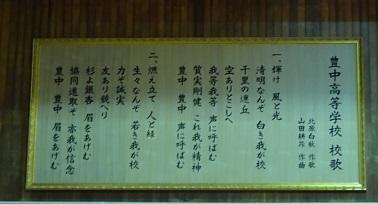 豊中高等学校 校歌
北原白秋 作歌
山田耕筰 作曲
一、輝け 風と光
清明なんぞ 白き我が校
千里の連丘
空ありとこしへ
我等我等 声に呼ばむ
質実剛健 これ我が精神
豊中 豊中 声に呼ばむ
二、燃え立て 人と緑
生々なんぞ 若き我が校
力ぞ誠実
友あり競へり
杉よ銀杏 眉をあげむ
協同進取ぞ 亦我が信念
豊中 豊中 眉をあげむ